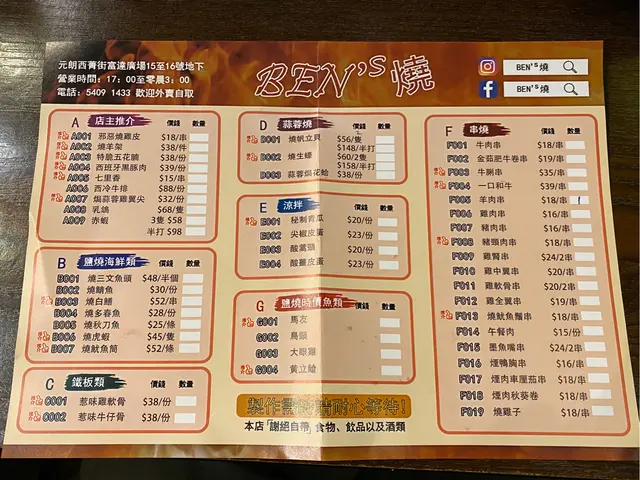 元朗西菁街富達廣場15至16號地下
營業時間：17：00至零晨3：00
電話：5409 1433 歡迎外賣自取
BEN'S燒
BEN'S燒
BEN'S燒
A 店主推介 價錢 數量
A001 邪惡燒雞皮 $18/串
A002 燒羊架 $38/件
A003 特脆五花腩 $38/份
A004 西班牙黑豚肉 $39/份
A005 七里香 $15/串
A006 西冷牛排 $88/份
A007 焗蒜蓉雞翼尖 $32/份
A008 乳鴿 $68/隻
A009 赤蝦 3隻 $58
半打 $98
B 鹽燒海鮮類 價錢 數量
B001 燒三文魚頭 $48/半個
B002 燒鯖魚 $30/份
B003 燒白鱔 $52/串
B004 燒多春魚 $28/份
B005 燒秋刀魚 $25/條
B006 燒虎蝦 $45/隻
B007 燒魷魚筒 $52/串
C 鐵板類 價錢 數量
C001 惹味雞軟骨 $38/份
C002 惹味牛仔骨 $38/份
D 蒜蓉燒 價錢 數量
D001 燒帆立貝 $56/隻
$148/半打
D002 燒生蠔 $60/2隻
$158/半打
D003 蒜蓉焗花蛤 $38/份
E 涼拌 價錢 數量
E001 秘制青瓜 $20/份
E002 尖椒皮蛋 $23/份
E003 酸蕎頭 $20/份
E004 酸薑皮蛋 $23/份
G 鹽燒時價魚類 價錢 數量
G001 馬友
G002 烏頭
G003 大眼雞
G004 黃立䱽
製作需時請耐心等待!
本店「謝絕自帶」食物、飲品以及酒類
F 串燒 價錢 數量
F001 牛肉串 $18/串
F002 金菇肥牛卷串 $19/串
F003 牛脷串 $35/串
F004 一口和牛 $39/串
F005 羊肉串 $18/串
F006 雞肉串 $16/串
F007 豬肉串 $16/串
F008 豬頸肉串 $18/串
F009 雞腎串 $24/2串
F010 雞中翼串 $20/串
F011 雞軟骨串 $20/2串
F012 雞全翼串 $19/串
F013 燒魷魚鬚串 $18/串
F014 午餐肉 $15/份
F015 墨魚嘴串 $24/2串
F016 煙鴨胸串 $16/串
F017 煙肉車厘茄串 $18/串
F018 煙肉秋葵卷 $18/串
F019 燒雞子 $18/串